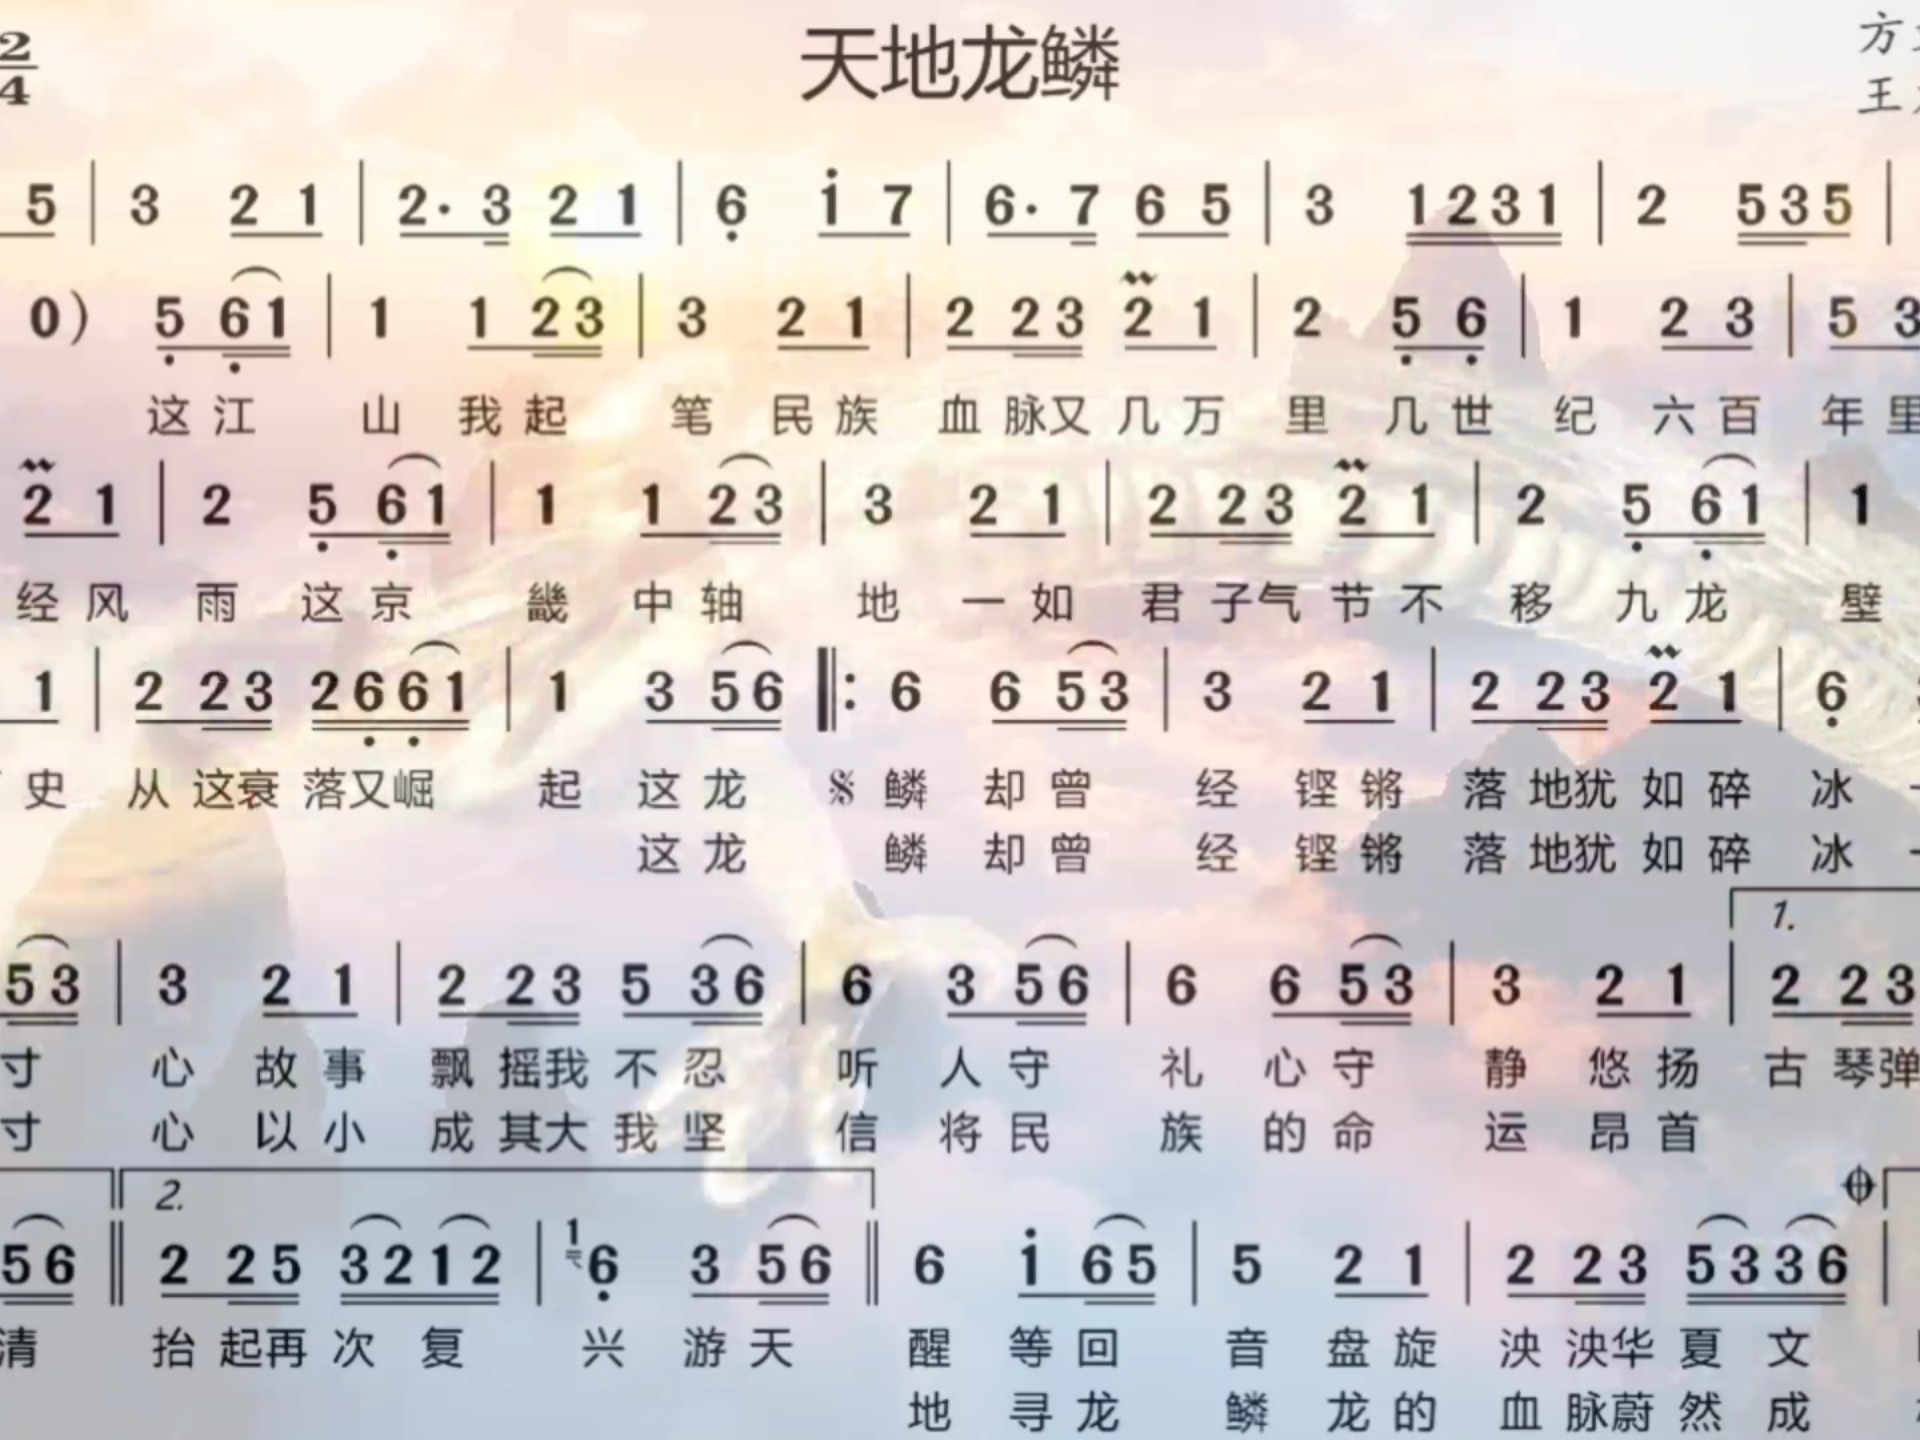 天地龙鳞
2
4
方
王
5 | 3 2 1 | 2· 3 2 1 | 6 i 7 | 6· 7 6 5 | 3 1 2 3 1 | 2 5 3 5 |
0) 5 6 1 | 1 1 2 3 | 3 2 1 | 2 2 3 2 1 | 2 5 6 | 1 2 3 | 5 3
这江 山 我起 笔 民族 血脉又几万 里 几世 纪 六百 年里
2 1 | 2 5 6 1 | 1 1 2 3 | 3 2 1 | 2 2 3 2 1 | 2 5 6 1 | 1
经风 雨 这京 畿 中轴 地 一如 君子气节不 移 九龙 壁
1 | 2 2 3 2 6 6 1 | 1 3 5 6 ‖: 6 6 5 3 | 3 2 1 | 2 2 3 2 1 | 6
史 从这衰落又崛 起 这龙 𝄋 鳞 却曾 经 铿锵 落地犹如碎 冰
这龙 鳞 却曾 经 铿锵 落地犹如碎 冰
1.
5 3 | 3 2 1 | 2 2 3 5 3 6 | 6 3 5 6 | 6 6 5 3 | 3 2 1 | 2 2 3
寸 心 故事 飘摇我不忍 听 人守 礼 心守 静 悠扬 古琴弹
寸 心 以小 成其大我坚 信 将民 族 的命 运 昂首
2.
5 6 ‖ 2 2 5 3 2 1 2 | 1 6 3 5 6 ‖ 6 i 6 5 | 5 2 1 | 2 2 3 5 3 3 6 |
清 抬起再次复 兴 游天 醒 等回 音 盘旋 泱泱华夏文
地 寻龙 鳞 龙的 血脉蔚然成